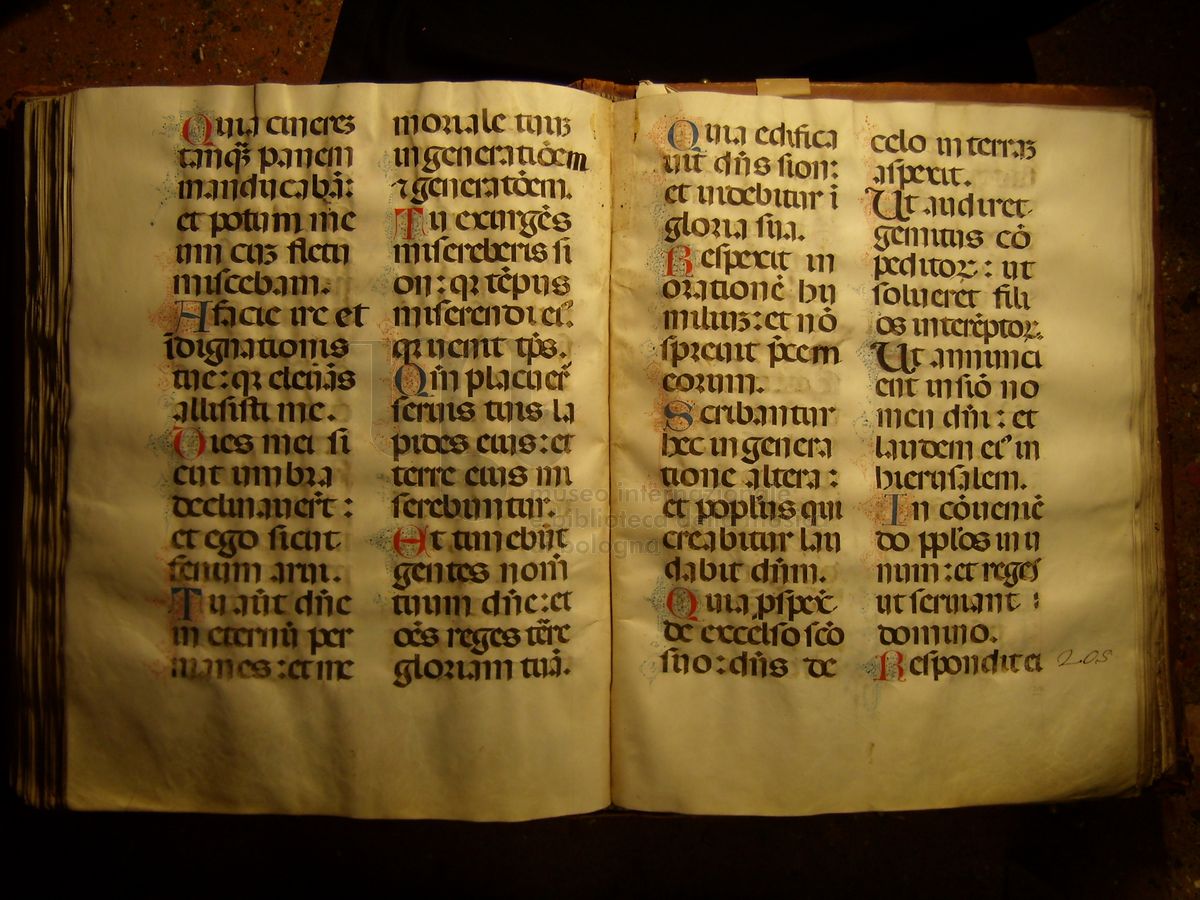 Quia cinereʒ
tanqʒ panem
manducabā:
et potum me
um cuʒ fletu
miscebam.
A facie ire et
īdignationis
tue: qꝛ eleuās
allisisti me.
Dies mei si
cut umbra
declinauer̄t:
et ego sicut
fenum arui.
Tu aūt dn̄e
in eternū per
manes: et me
moriale tuuʒ
in generatiōem
⁊ generatōem.
Tu exurgēs
misereberis si
on: qꝛ tēpus
miserendi eiꝰ.
qꝛ uenit tp̄s.
Qm̄ placuer̄
seruis tuis la
pides eius: et
terre eius mi
serebuntur.
Et timebūt
gentes nom̄
tuum dn̄e: et
oēs reges ter̄e
gloriam tuā.
Quia edifica
uit dn̄s sion:
et uidebitur ī
gloria sua.
Respexit in
orationē hu
miliuʒ: et nō
spreuit p̄cem
eorum.
Scribantur
hec in genera
tione altera:
et populus qui
creabitur lau
dabit dn̄m.
Quia ꝓspex̄
de excelso scō
suo: dn̄s de
celo in terraʒ
aspexit.
Ut audiret
gemitus cō
peditoꝝ: ut
solueret fili
os interēptoꝝ.
Ut annunci
ent in siō no
men dn̄i: et
laudem eiꝰ in
hierusalem.
In cōueniē
do pplōs in u
num: et reges
ut seruiant
domino.
Respondit ei
205
museo internazionale
e biblioteca della musica
bologna